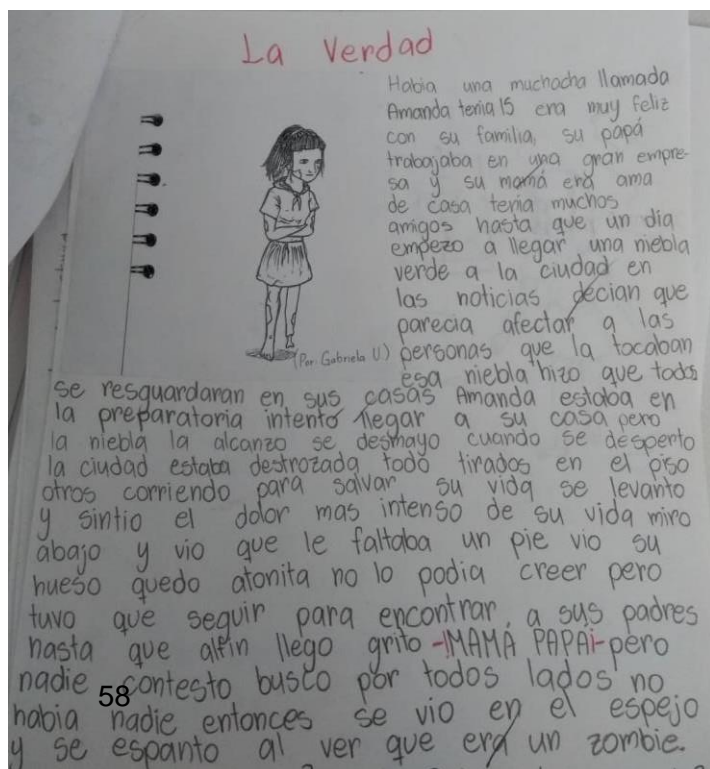 La Verdad
Habia una muchacha llamada
Amanda tenia 15 era muy feliz
con su familia, su papá
trabajaba en una gran empre-
sa y su mamá era ama
de casa tenia muchos
amigos hasta que un dia
empezo a llegar una niebla
verde a la ciudad en
las noticias decian que
parecia afectar a las
(Por: Gabriela U) personas que la tocaban
esa niebla hizo que todos
se resguardaran en sus casas Amanda estaba en
la preparatoria intentó llegar a su casa pero
la niebla la alcanzo se desmayo cuando se desperto
la ciudad estaba destrozada todo tirados en el piso
otros corriendo para salvar su vida se levanto
y sintio el dolor mas intenso de su vida miro
abajo y vio que le faltaba un pie vio su
hueso quedo atonita no lo podia creer pero
tuvo que seguir para encontrar a sus padres
hasta que alfin llego grito -¡MAMÁ PAPA!-pero
nadie contesto busco por todos lados no
58
habia nadie entonces se vio en el espejo
y se espanto al ver que era un zombie.